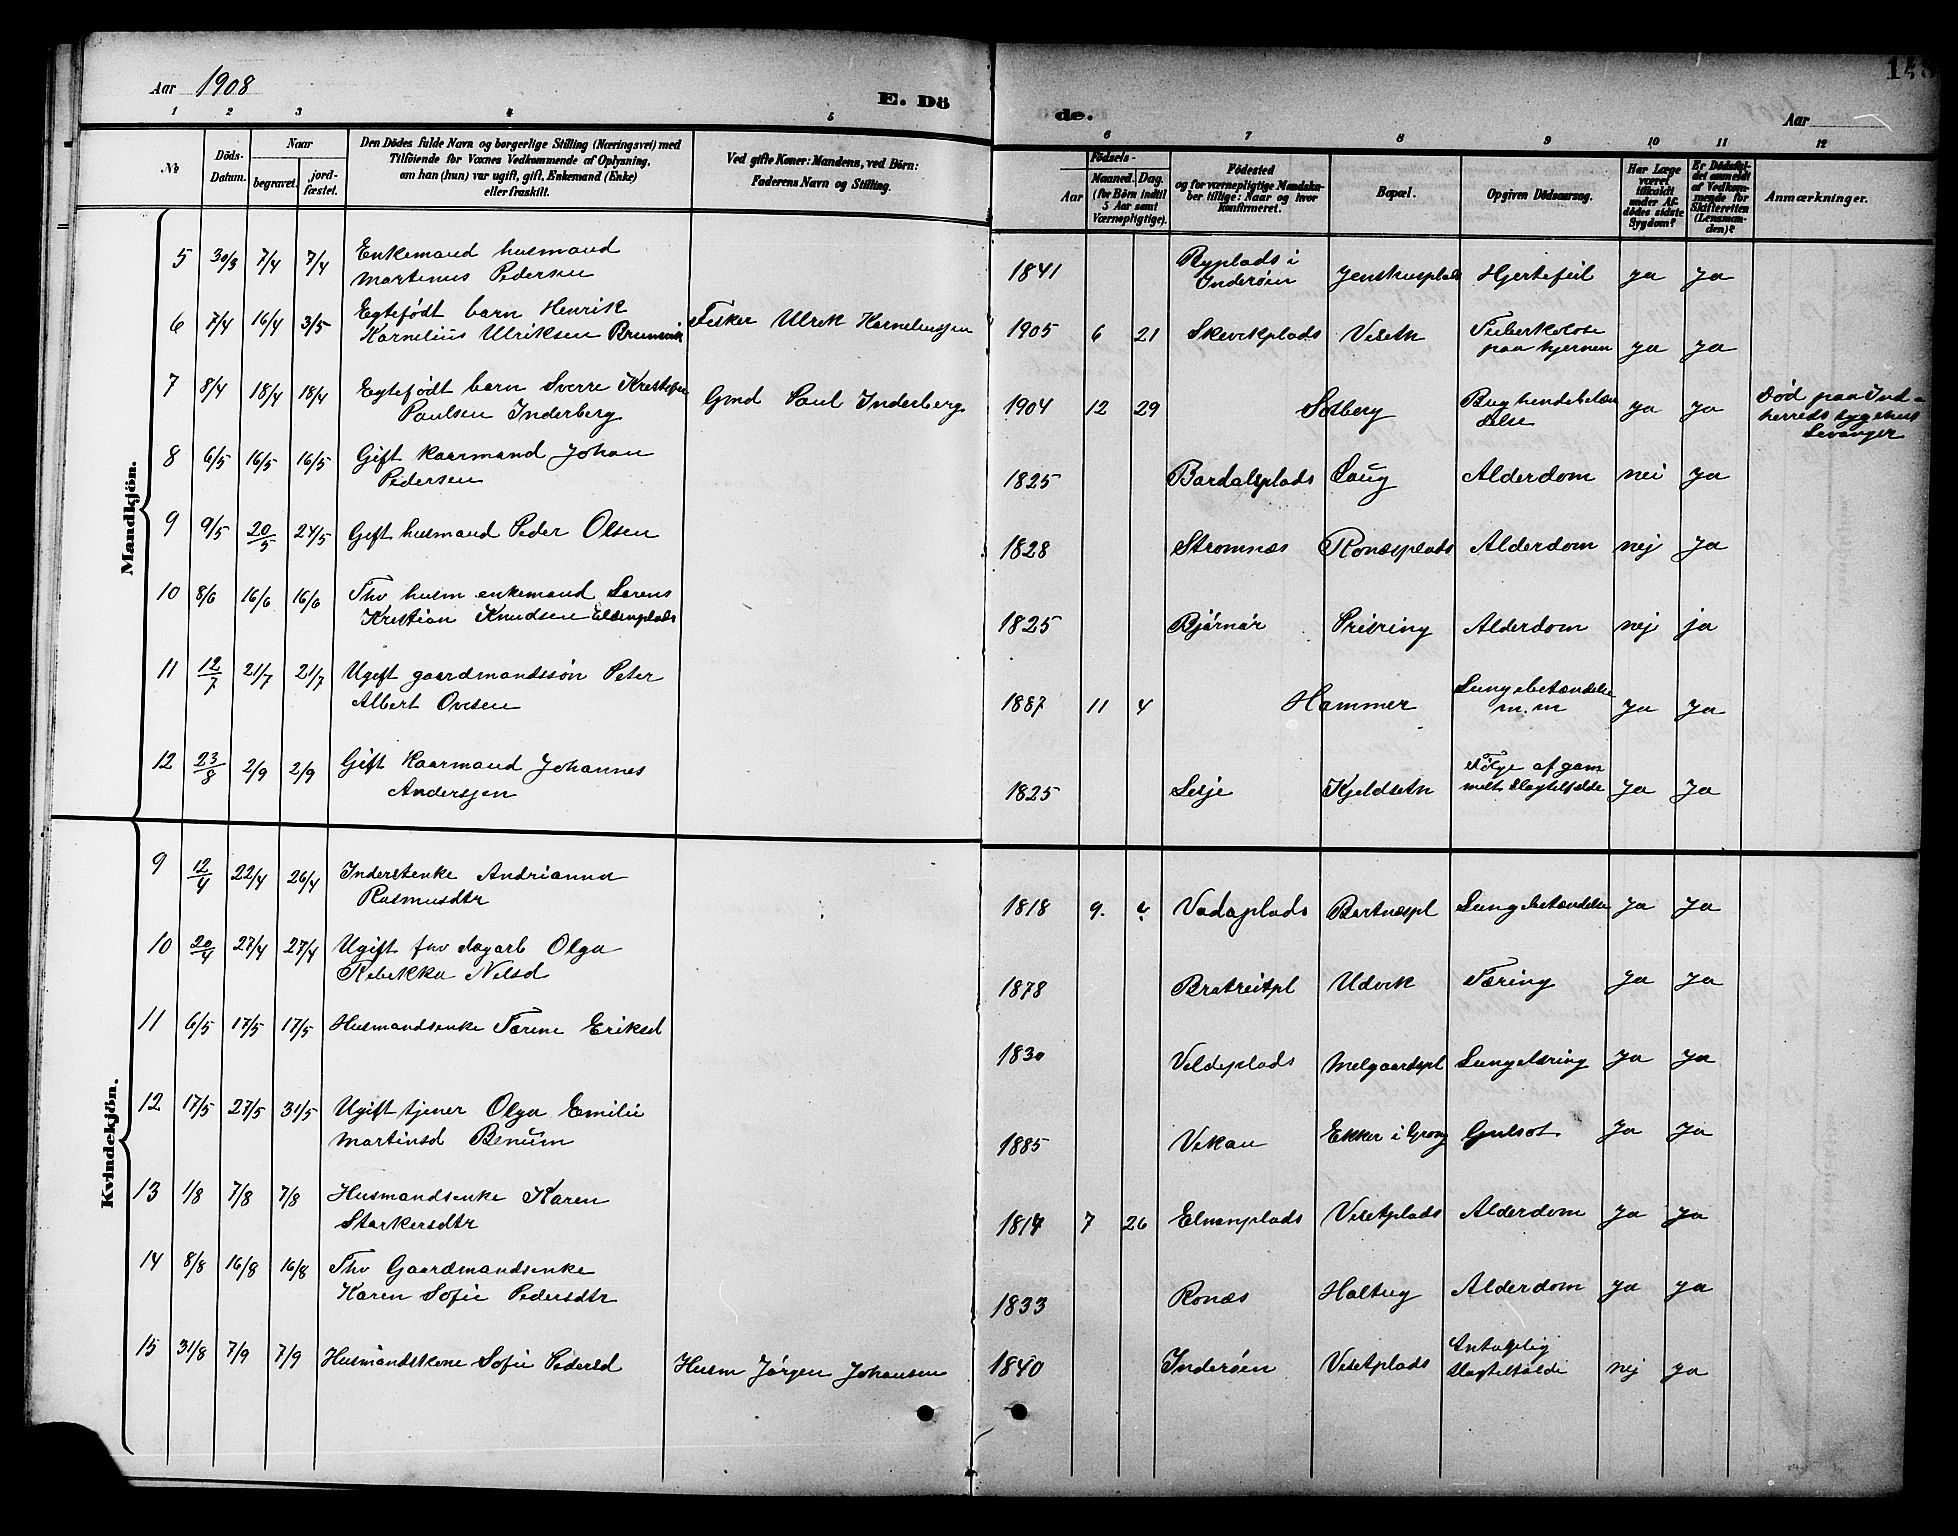 Aar 1908
E. Dö
de.
Aar
1 2 3 4 5 6 7 8 9 10 11 12
No
Döds-Datum.
Naar
begravet.
jord-fæstet.
Den Dödes fulde Navn og borgerlige Stilling (Næringsvei) med
Tilföiende for Voxnes Vedkommende af Oplysning,
om han (hun) var ugift, gift, Enkemand (Enke)
eller fraskilt.
Ved gifte Koner: Mandens, ved Börn:
Faderens Navn og Stilling.
Födsels-
Aar
Maaned. Dag.
(for Börn indtil
5 Aar samt
Værnepligtige).
Födested
og for værnepligtige Mandska-
ber tillige: Naar og hvor
konfirmeret.
Bopæl.
Opgiven Dödsaarsag.
Har Læge
været
tilkaldt
under Af-
dödes sidste
Sygdom?
Er Dödsfal-
det anmeldt
af Vedkom-
mende for
Skifteretten
(Lensman-
den)?
Anmærkninger.
Mandkjön.
5 30/3 7/4 7/4 Enkemand husmand
Martinus Pedersen
1841 Ryplads i
Inderøen Jenskusplads Hjertefeil ja ja
6 7/4 16/4 3/5 Egtefødt barn Henrik
Kornelius Ulriksen Brunvik Fisker Ulrik Korneliussen
1905 6 21 Skevikplads Viseth Tuberkolose
paa hjernen ja ja
7 8/4 18/4 18/4 Egtefødt barn Sverre Kristofer
Paulsen Inderberg Gmd Paul Inderberg
1904 12 29 Solberg Bughindebetæn
delse ja ja Død paa Ind-
herreds sygehus
Levanger
8 6/5 16/5 16/5 Gift kaarmand Johan
Pedersen
1825 Bardalsplads Saug Alderdom nei ja
9 9/5 20/5 24/5 Gift husmand Peder Olsen
1828 Stromnæs Ronæsplads Alderdom nej ja
10 8/6 16/6 16/6 Fhv husm enkemand Lorens
Kristian Knudsen Eldenplads
1825 Bjørnør Prisring Alderdom nej ja
11 12/7 21/7 21/7 Ugift gaardmandssøn Peter
Albert Ovesen
1887 11 4 Hammer Lungebetændelse
m.m ja ja
12 23/8 2/9 2/9 Gift Kaarmand Johannes
Anderssen
1825 Lesje Kjeldseth Følge af gam
melt slagtilfælde ja ja
Kvindekjön.
9 12/4 22/4 26/4 Inderstenke Andrianna
Rasmusdtr
1818 9. 4 Vadaplads Bartnæspl Lungebetændelse ja ja
10 20/4 27/4 27/4 Ugift fhv dagarb Olga
Rebekka Nilsd
1878 Bratreitpl Udvik Tæring ja ja
11 6/5 17/5 17/5 Husmandsenke Farine Eriksd
1830 Veldeplads Melgaardspl Lungetæring ja ja
12 17/5 27/5 31/5 Ugift tjener Olga Emilie
Martinsd Benum
1885 Vikan Ekker i Grong Gulsot ja ja
13 1/8 7/8 7/8 Husmandsenke Karen
Starkersdtr
1817 7 26 Elnanplads Visetplads Alderdom ja ja
14 8/8 16/8 16/8 Fhv Gaardmandsenke
Karen Sofie Pedersdtr
1833 Ronæs Holtug Alderdom ja ja
15 31/8 7/9 7/9 Husmandskone Sofie Pedersd Husm Jørgen Johansen
1840 Inderøen Visetplads Antagelig
slagtilfælde nej ja